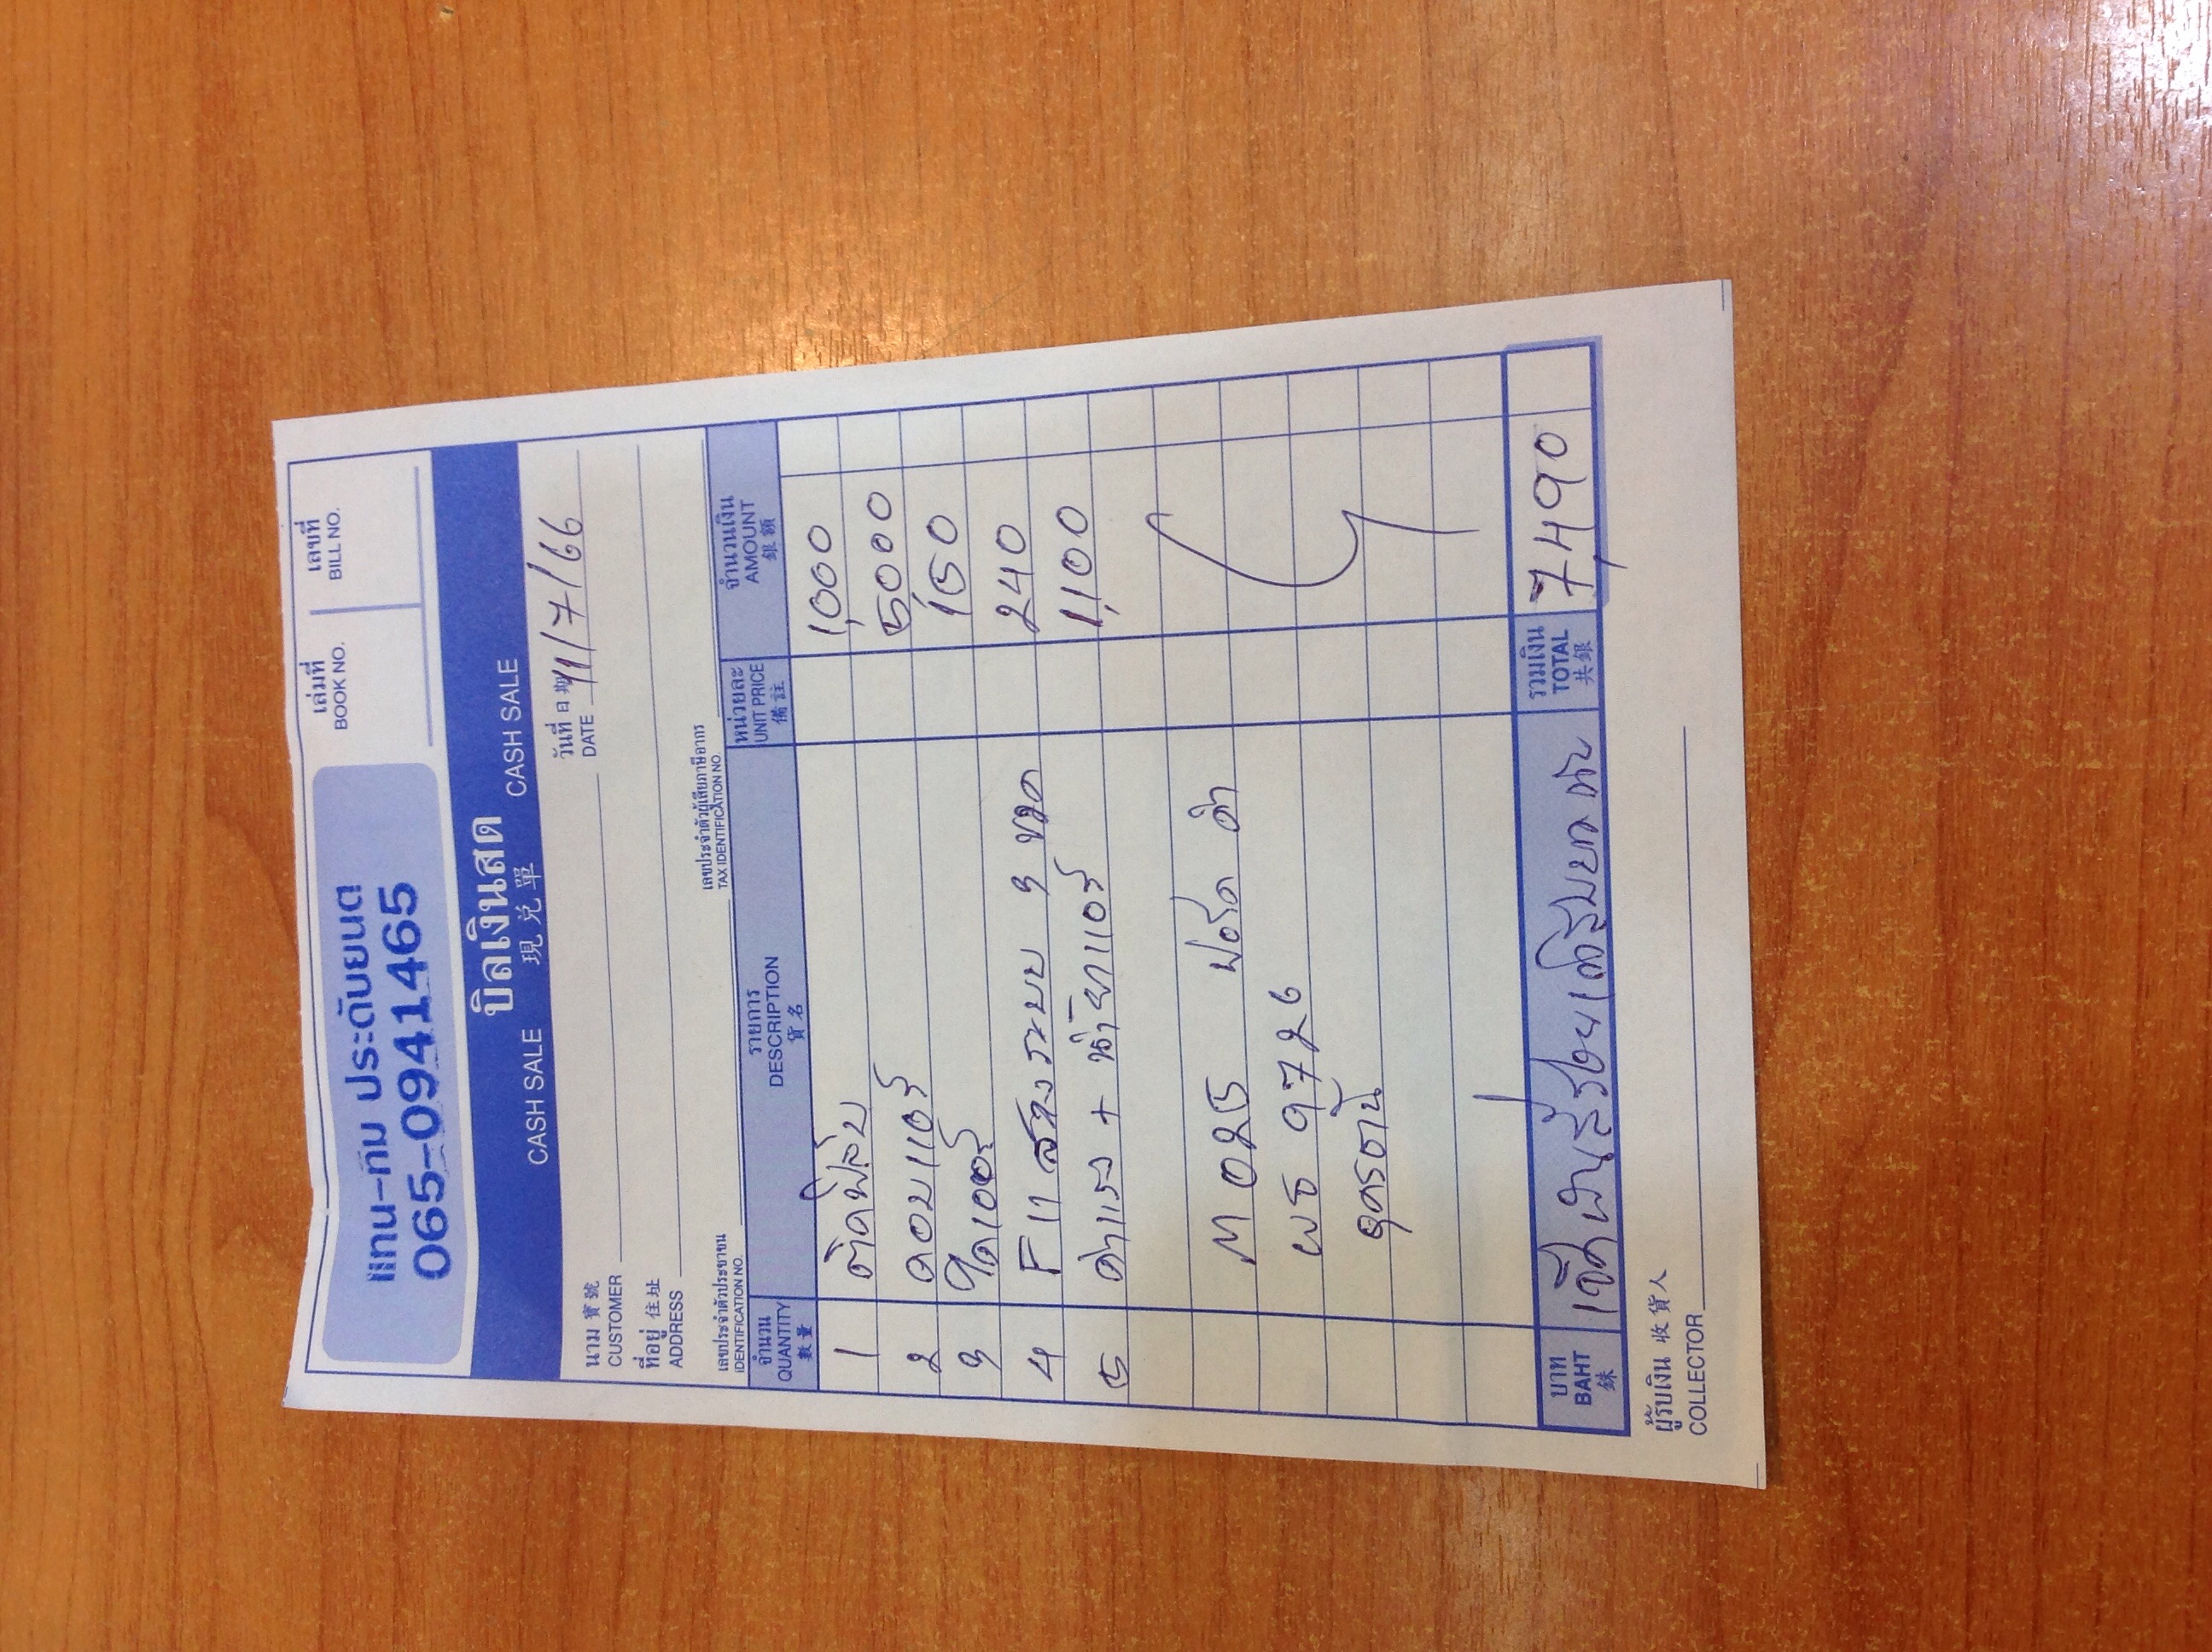 แทน-ทิม ประดับยนต์
065-0941465
เล่มที่
BOOK NO.
เลขที่
BILL NO.
CASH SALE บิลเงินสด CASH SALE
現 兌 單
นาม 寶號
CUSTOMER
วันที่ 日期
DATE 11/7/66
ที่อยู่ 住址
ADDRESS
เลขประจำตัวประชาชน
IDENTIFICATION NO.
เลขประจำตัวผู้เสียภาษีอากร
TAX IDENTIFICATION NO.
จำนวน รายการ หน่วยละ จำนวนเงิน
QUANTITY DESCRIPTION UNIT PRICE AMOUNT
數量 貨名 備註 銀額
1 ติดฟิล์ม 1,000
2 คอมแอร์ 5000
3 ไดเออร์ 150
4 F 11 ล้างระบบ 3 ขวด 240
5 ค่าแรง + น้ำยาแอร์ 1,100
M 025 ฟอร์ด ดำ
ผธ 9726
อุดรธานี
บาท
BAHT
銖
เจ็ดพันสี่ร้อยเก้าสิบบาทถ้วน
รวมเงิน
TOTAL
共銀
7,490
ผู้รับเงิน 收貨人
COLLECTOR